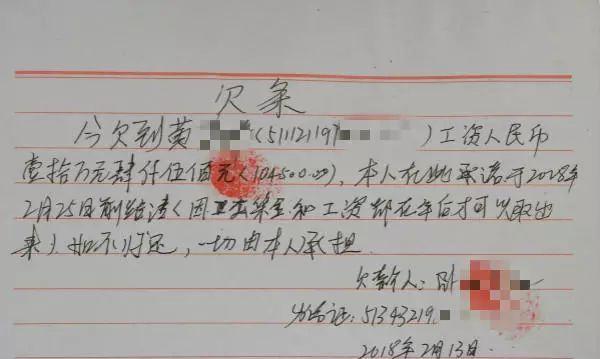 欠条
今欠到黄 (511121197 )工资人民币
壹拾万元肆仟伍佰元(104500.00),本人在此承诺于2018年
2月25日前结清(因 和工资都在年后才可以取出
来).如不归还,一切由本人承担.
欠款人:
身份证:51343219
2018年2月13日.